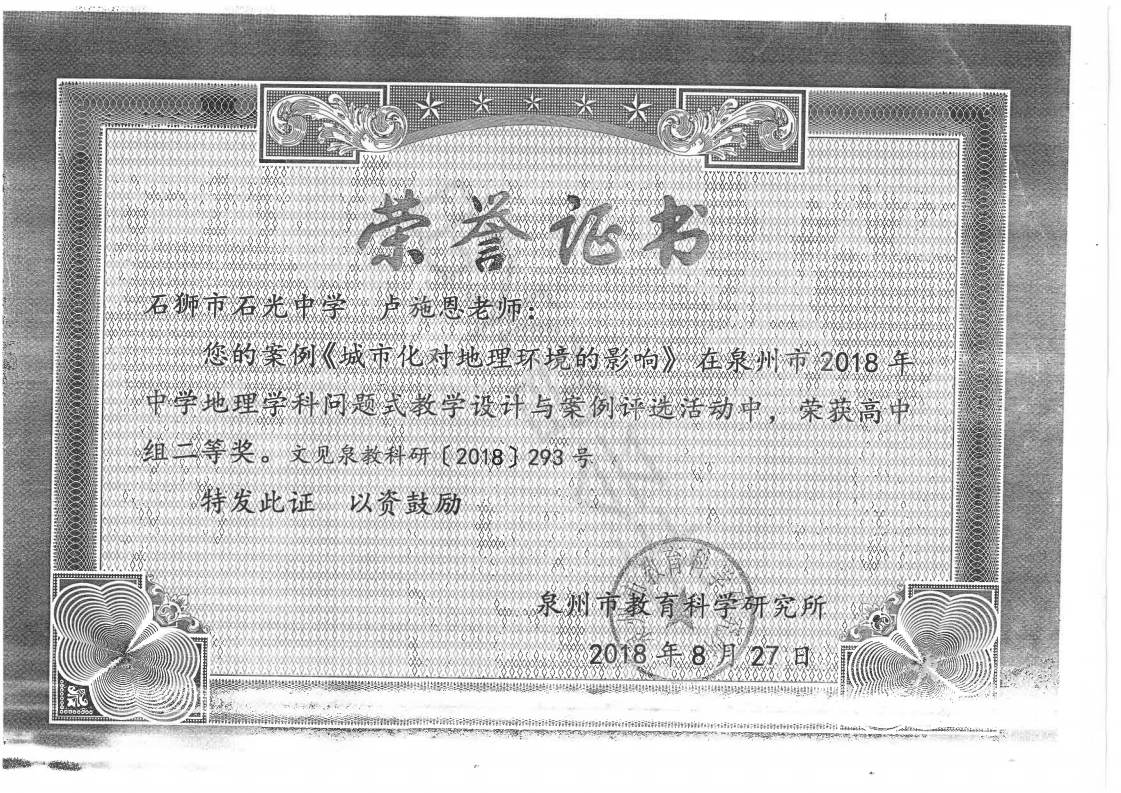 荣誉证书
石狮市石光中学 卢施恩老师:
您的案例《城市化对地理环境的影响》在泉州市2018年
中学地理学科问题式教学设计与案例评选活动中，荣获高中
组二等奖。文见泉教科研〔2018〕293号
特发此证 以资鼓励
泉州市教育科学研究所
2018年8月27日